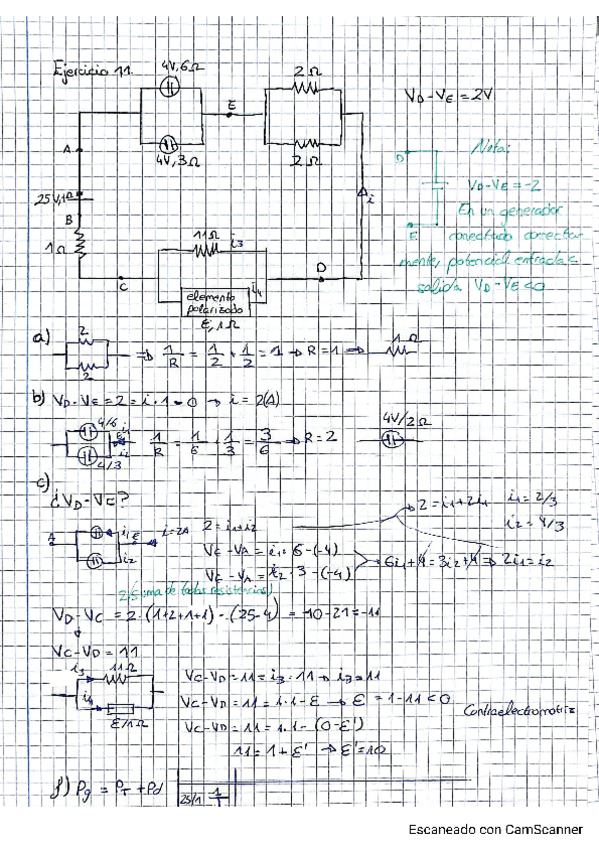 Ejercicio 11.
4V, 6Ω
2Ω
V_D - V_E = 2V
E
A
4V, 3Ω
2Ω
Nota:
D
25V, 1Ω
V_D - V_E = -2
B
i
En un generador
11Ω
i3
E
conectado correcta
1Ω
D
mente, potencial entrada <
C
elemento
i4
salida. V_D - V_E < 0
polarizado
E', 1Ω
a)
2
2
⇒ 1/R = 1/2 + 1/2 = 1 → R = 1 →
1Ω
b) V_D - V_E = 2 = i · 1 - 0 → i = 2(A)
4/6
i1
E
i2
4/3
1/R = 1/6 + 1/3 = 3/6 → R = 2
4V/2Ω
c)
¿V_D - V_C?
A
i1
E
i = 2A
i2
2 = i1 + i2
→ 2 = i1 + 2i1
i1 = 2/3
i2 = 4/3
V_E - V_A = i1 · 6 - (-4)
V_E - V_A = i2 · 3 - (-4)
6i1 + 4 = 3i2 + 4 ⇒ 2i1 = i2
suma de todas resistencias
V_D - V_C = 2 · (1+2+1+1) - (25-4) = 10 - 21 = -11
V_C - V_D = 11
i3
11Ω
i4
E/1Ω
V_C - V_D = 11 = i3 · 11 → i3 = 11
V_C - V_D = 11 = 1 · 1 - E → E = 1 - 11 < 0
Contraelectromotriz
V_C - V_D = 11 = 1 · 1 - (0 - E')
11 = 1 + E' → E' = 10
f) Pg = PT + Pd
25/1
Escaneado con CamScanner